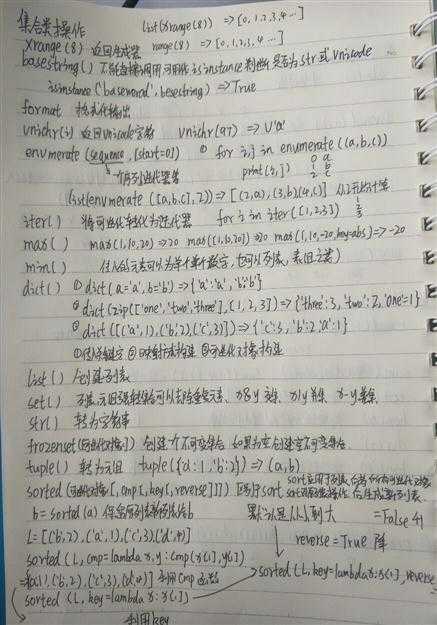 集合类操作 list(xrange(8)) => [0,1,2,3,4...]
xrange(8) 返回生成器 range(8) => [0,1,2,3,4...]
basestring() 不能直接调用 可用做isinstance判断是否为str或Unicode
isinstance('baseword', basestring) => True
format 格式化输出
unichr(i) 返回unicode字符 unichr(97) => U'a'
enumerate (sequence, [start=0]) ① for i,j in enumerate((a,b,c))
print(i,j) 0 a
1 b
2 c
list(enumerate([a,b,c],2)) => [(2,a),(3,b)(4,c)] 从2开始计算
iter() 将可迭代转化为迭代器 for i in iter([1,2,3]) 1
2
3
max() max(1,10,20) => 20 max([1,10,20]) => 20 max(1,10,-20,key=abs) => -20
min()
dict() ① dict(a='a', b='b') => {'a':'a', 'b':'b'}
② dict(zip(['one','two','three'],[1,2,3])) => {'three':3, 'two':2, 'one'=1}
③ dict([('a',1),('b',2),('c',3)]) => {'c':3, 'b':2,'a':1}
①传关键字 ②映射函数构造 ③可迭代对象构造
list() 创建列表
set() x&y 交集 x|y 并集 x-y 差集
str() 转为字符串
frozenset([可迭代对象]) 创建一个不可变集合 如果为空创建空不可变集合
tuple() 转为元组 tuple({a:1,'b':2}) => (a,b)
sorted (可迭代对象[, cmp[, key[, reverse]]]) 区别于sort
b = sorted(a) 默认是从小到大 =False 升
reverse = True 降
L = [('b',2), ('a',1),('c',3)('d',4)]
sorted (L, cmp=lambda x,y: cmp(x[1],y[1])
利用cmp函数
sorted (L, key=lambda x: x[1])
sorted (L, key=lambda x: x[1], reverse
利用key